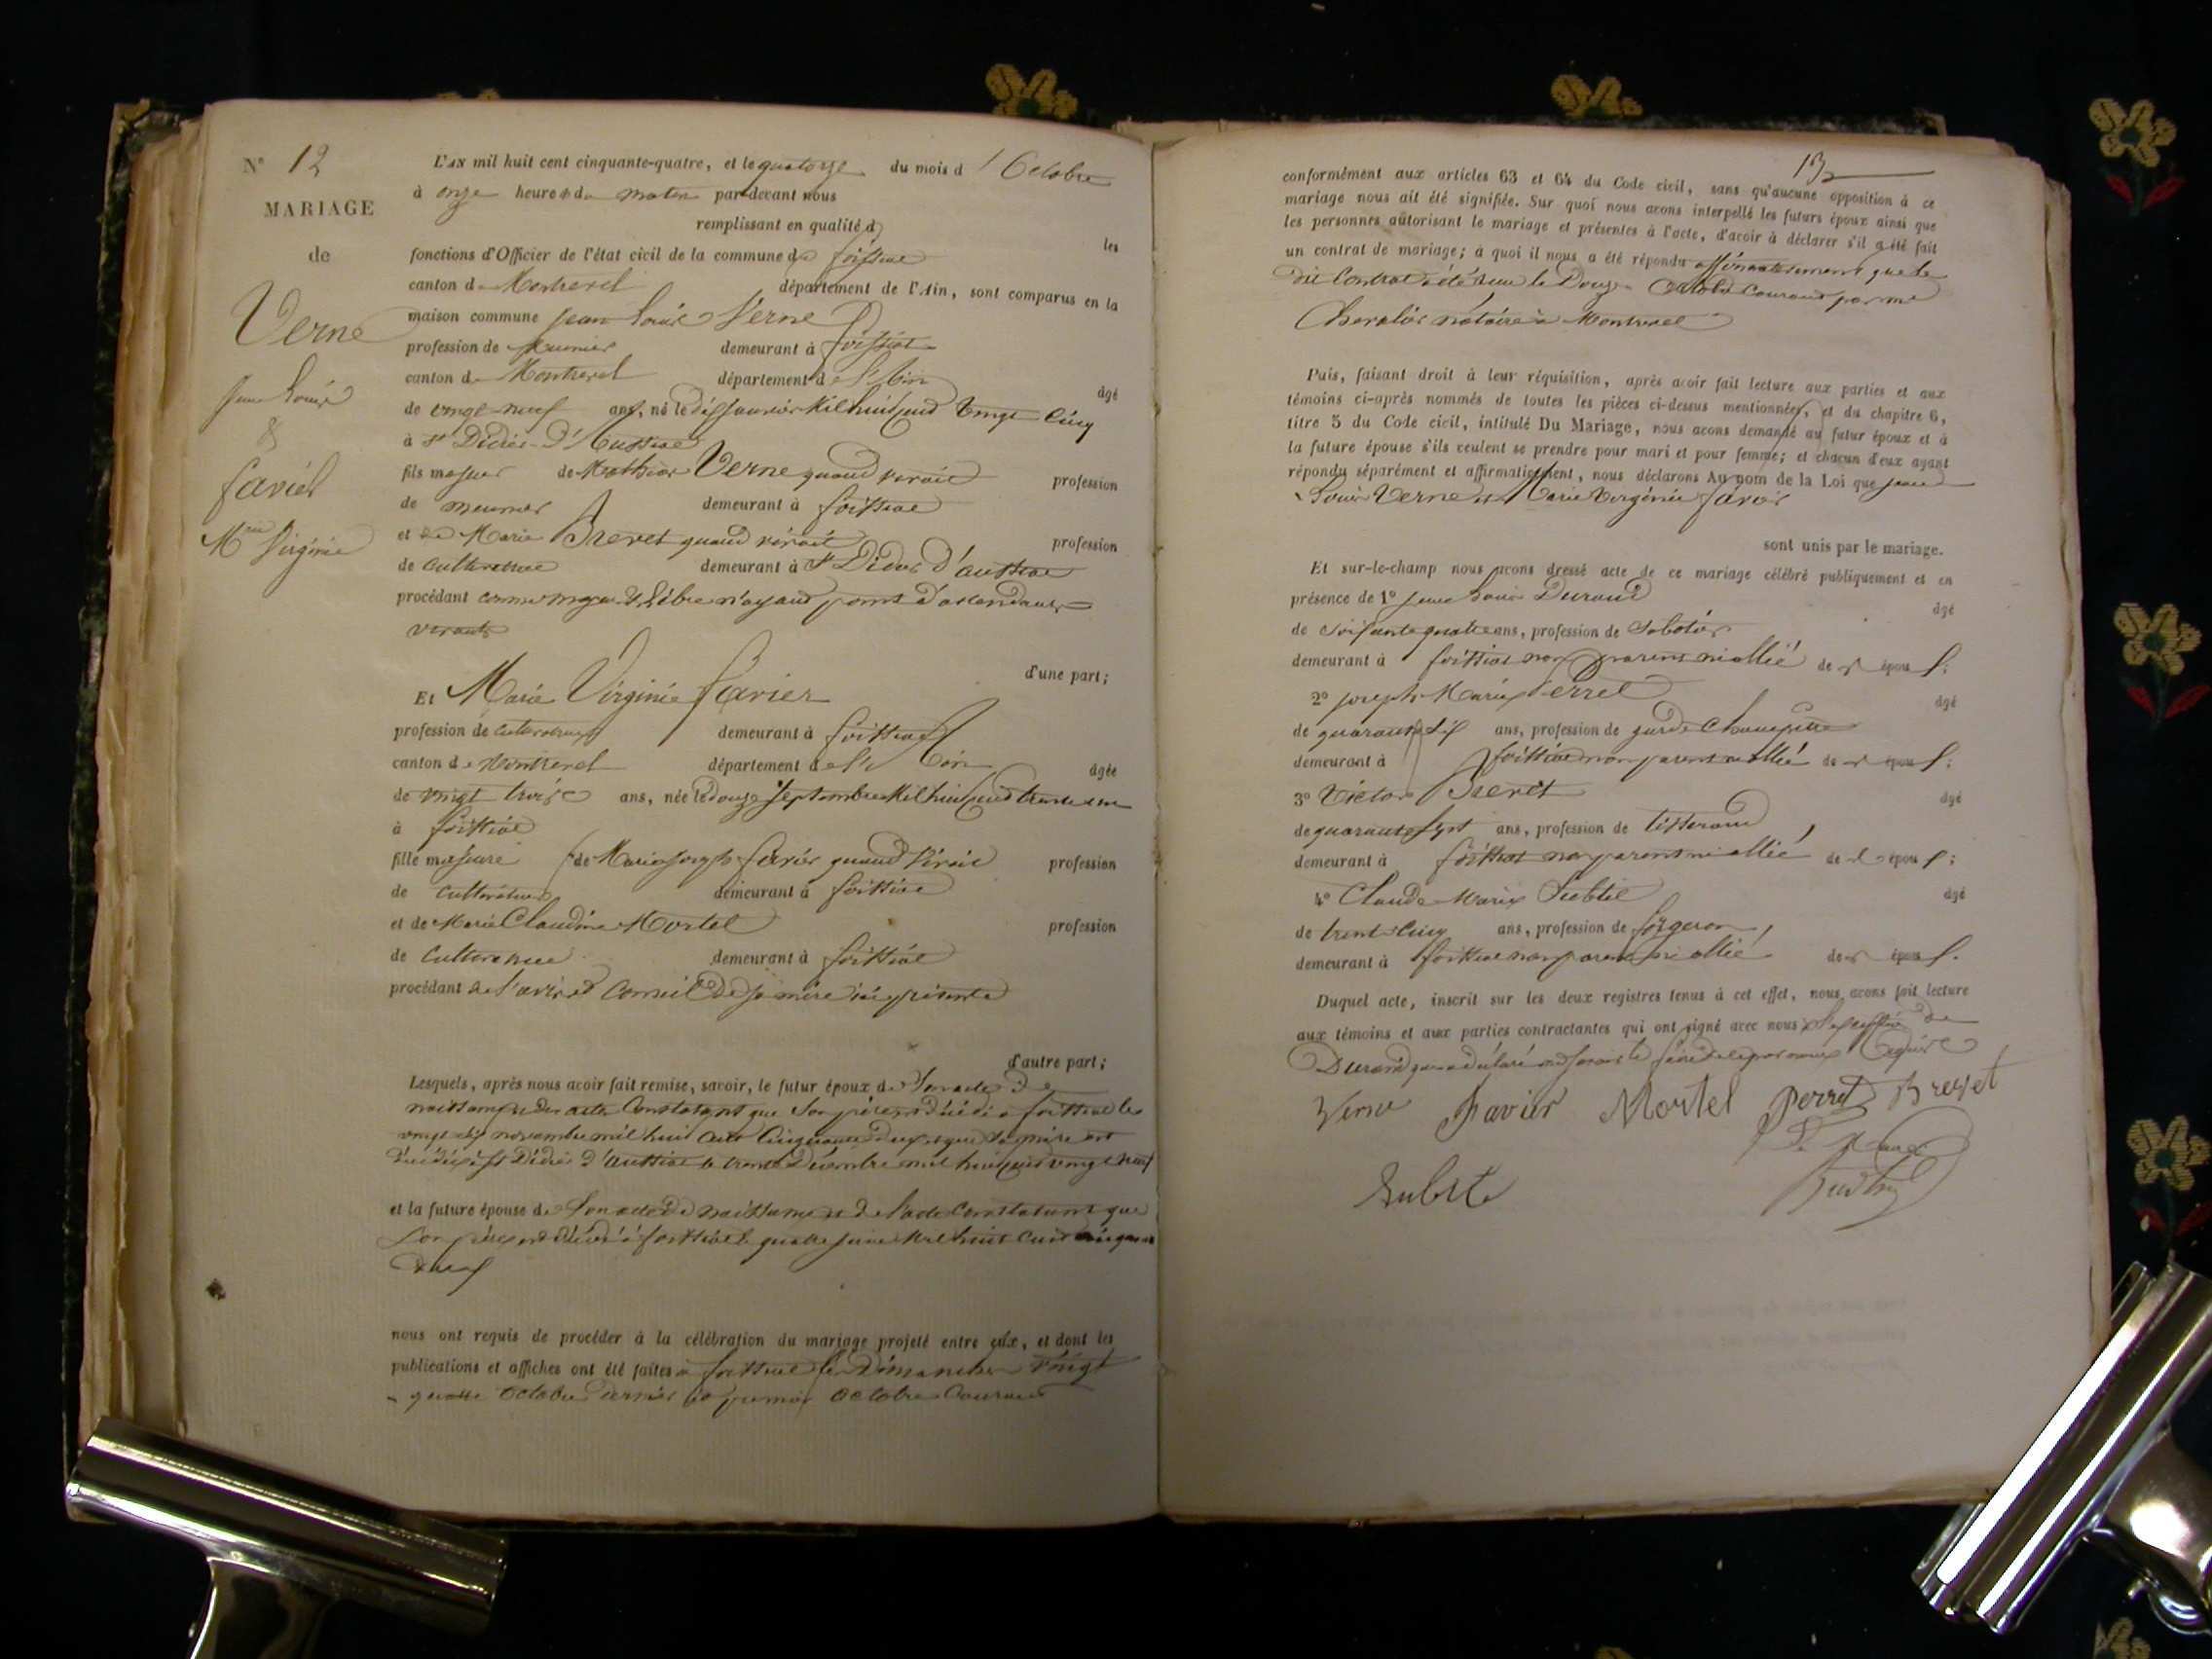 N° 12
MARIAGE
de
Verne
Jean Louis
&
favier
Mie Virginie
L'AN mil huit cent cinquante-quatre, et le quatorze du mois d'Octobre
à onze heures du matin par-devant nous
remplissant en qualité d
les
fonctions d'Officier de l'état civil de la commune de foissiat
canton de Montrevel département de l'Ain, sont comparus en la
maison commune jean Louis Verne
profession de meunier demeurant à foissiat
canton de Montrevel département de l'Ain
âgé
de vingt neuf ans, né le dix janvier Mil huit cent vingt cinq
à St Didier d'Aussiat
fils majeur de Mathieu Verne quand vivait profession
de meunier demeurant à foissiat
et de Marie Brevet quand vivait profession
de cultivatrice demeurant à St Didier d'aussiat
procédant comme majeur & libre n'ayant point d'ascendans
vivants
d'une part;
Et Marie Virginie favier
profession de cultivatrice demeurant à foissiat
canton de Montrevel département de l'Ain
âgée
de vingt trois ans, née le douze Septembre Mil huit cent trente un
à foissiat
fille majeure de Marie joseph favier quand vivait profession
de cultivateur demeurant à foissiat
et de Marie Claudine Mortel profession
de cultivatrice demeurant à foissiat
procédant de l'avis et conseil de sa mère ici présente
d'autre part;
Lesquels, après nous avoir fait remise, savoir, le futur époux de Son acte de
naissance des actes Constatant que Son père est décédé à foissiat le
vingt dix novembre mil huit cent cinquante deux et que sa mère est
décédée à St Didier d'aussiat le trente Décembre mil huit cent vingt neuf
et la future épouse de Son acte de naissance et de l'acte Constatant que
Son père est décédé à foissiat le quatre juin Mil huit cent cinquante
deux
nous ont requis de procéder à la célébration du mariage projeté entre eux, et dont les
publications et affiches ont été faites à foissiat les Dimanches vingt
quatre octobre dernier et premier octobre Courant
13
conformément aux articles 63 et 64 du Code civil, sans qu'aucune opposition à ce
mariage nous ait été signifiée. Sur quoi nous avons interpellé les futurs époux ainsi que
les personnes autorisant le mariage et présentes à l'acte, d'avoir à déclarer s'il a été fait
un contrat de mariage; à quoi il nous a été répondu affirmativement que le
dit Contrat a été reçu le Douze Octobre Courant par me
Chevalier notaire à Montrevel
Puis, faisant droit à leur réquisition, après avoir fait lecture aux parties et aux
témoins ci-après nommés de toutes les pièces ci-dessus mentionnées, et du chapitre 6,
titre 5 du Code civil, intitulé Du Mariage, nous avons demandé au futur époux et à
la future épouse s'ils veulent se prendre pour mari et pour femme; et chacun d'eux ayant
répondu séparément et affirmativement, nous déclarons Au nom de la Loi que jean
Louis Verne et Marie Virginie favier
sont unis par le mariage.
Et sur-le-champ nous avons dressé acte de ce mariage célébré publiquement et en
présence de 1° jean Louis Durand
âgé
de soixante quatre ans, profession de Sabotier
demeurant à foissiat non parent ni allié des époux;
2° joseph Marie Perret
âgé
de quarante six ans, profession de garde Champêtre
demeurant à foissiat non parent ni allié des époux;
3° Victor Brevet
âgé
de quarante sept ans, profession de tisserand,
demeurant à foissiat non parent ni allié des époux;
4° Claude Marie Subtil
âgé
de trente cinq ans, profession de forgeron,
demeurant à foissiat non parent ni allié des époux.
Duquel acte, inscrit sur les deux registres tenus à cet effet, nous avons fait lecture
aux témoins et aux parties contractantes qui ont signé avec nous à l'exception de
Durand qui a déclaré ne savoir le faire de ce requis
Verne Favier Mortel perret Brevet
Subtil